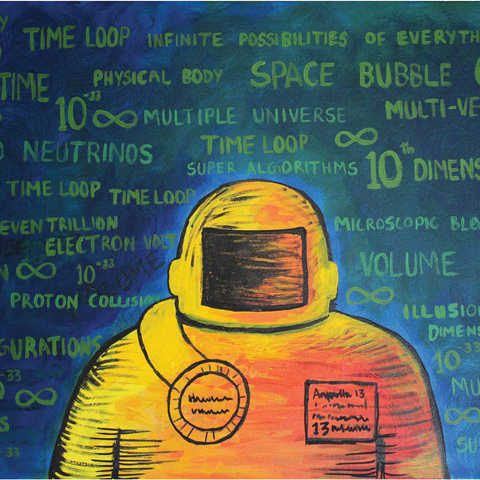 TIME LOOP INFINITE POSSIBILITIES OF EVERYTH
TIME PHYSICAL BODY SPACE BUBBLE
10⁻³³ ∞ MULTIPLE UNIVERSE MULTI-VE
NEUTRINOS TIME LOOP ∞
SUPER ALGORITHMS 10th DIMENS
TIME LOOP TIME LOOP
EVEN TRILLION MICROSCOPIC BL
ELECTRON VOLT
∞ 10⁻³³ VOLUME
PROTON COLLISIO ∞
ILLUSION
GURATIONS DIMEN
10⁻³³
-33 ∞ MU
∞
SU
Appollo 13
13